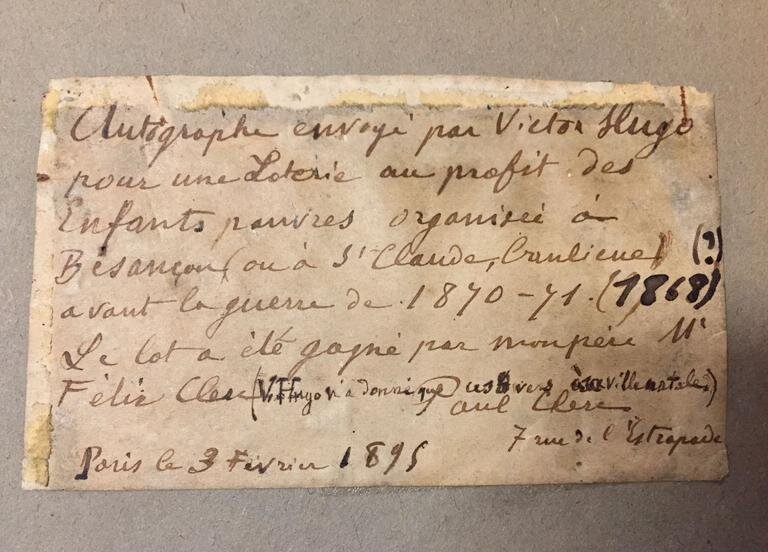 Autographe envoyé par Victor Hugo
pour une Loterie au profit des
Enfants pauvres organisée à
Bésançon (ou à St Claude, banlieue) (?)
avant la guerre de 1870-71. (1868)
Le lot a été gagné par mon père Mr
Félix Clerc (V. Hugo n'a donné que ces 8 vers à sa ville natale)
Paul Clerc
7 rue de l'Estrapade
Paris le 3 Février 1895